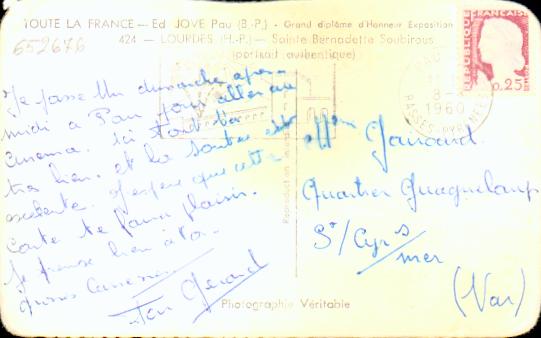 TOUTE LA FRANCE — Ed. JOVE Pau (B.-P.) - Grand diplôme d'Honneur Exposition
652676
424 — LOURDES (H.-P.) — Sainte Bernadette Soubirous
(portrait authentique)
RÉPUBLIQUE FRANÇAISE
0,25
8-
1960
BASSES-PYRÉNÉES
Je passe un dimanche après
midi à Pau pour aller au
cinéma. ici tout va
très bien. et la santé est
excellente. J'espère que cette
carte te fera plaisir.
Je pense bien à toi.
Ton Gérard
Reproduction
Quartier
St/Cyr s
mer
(Var)
Photographie Véritable